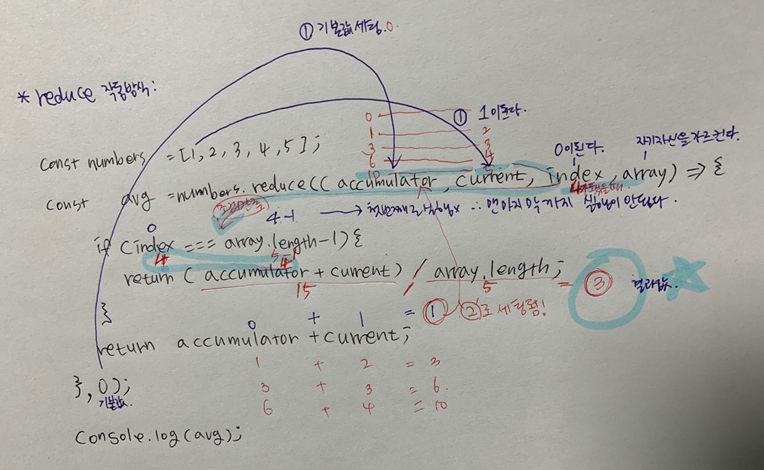 ① 기본값 세팅. 0
* reduce 작동방식:
0 ① 1이된다.
1 2
3 3
6 4
10
0이된다. 자기자신을 가르킨다.
const numbers = [1, 2, 3, 4, 5];
const avg = numbers.reduce((accumulator, current, index, array) => {
4-1 → ∴ 맨마지막까지 실행이 안된다.
0
if (index === array.length-1){
4 4
return (accumulator + current) / array.length;
15 / 5 = ③ 결과값.
}
0 + 1 = ① ②로 세팅됨!
return accumulator + current;
1 + 2 = 3
}, 0);
3 + 3 = 6
기본값.
6 + 4 = 10
console.log(avg);